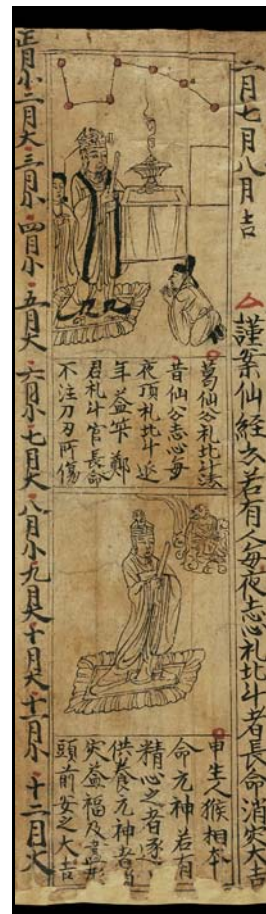 二月七月八月吉
謹案仙經云若有人每夜志心礼北斗者長命消灾大吉
葛仙公礼北斗法
昔仙公志心每
夜頂礼北斗延
年益筭鄭
君礼斗官長命
不注刀刃所傷
申生人猴相本
命元神若有
精心之者逐
供養元神者
灾益福及畫形
頭前安之大吉
正月小二月大三月小四月小五月大六月小七月大八月小九月大十月大十一月小十二月大